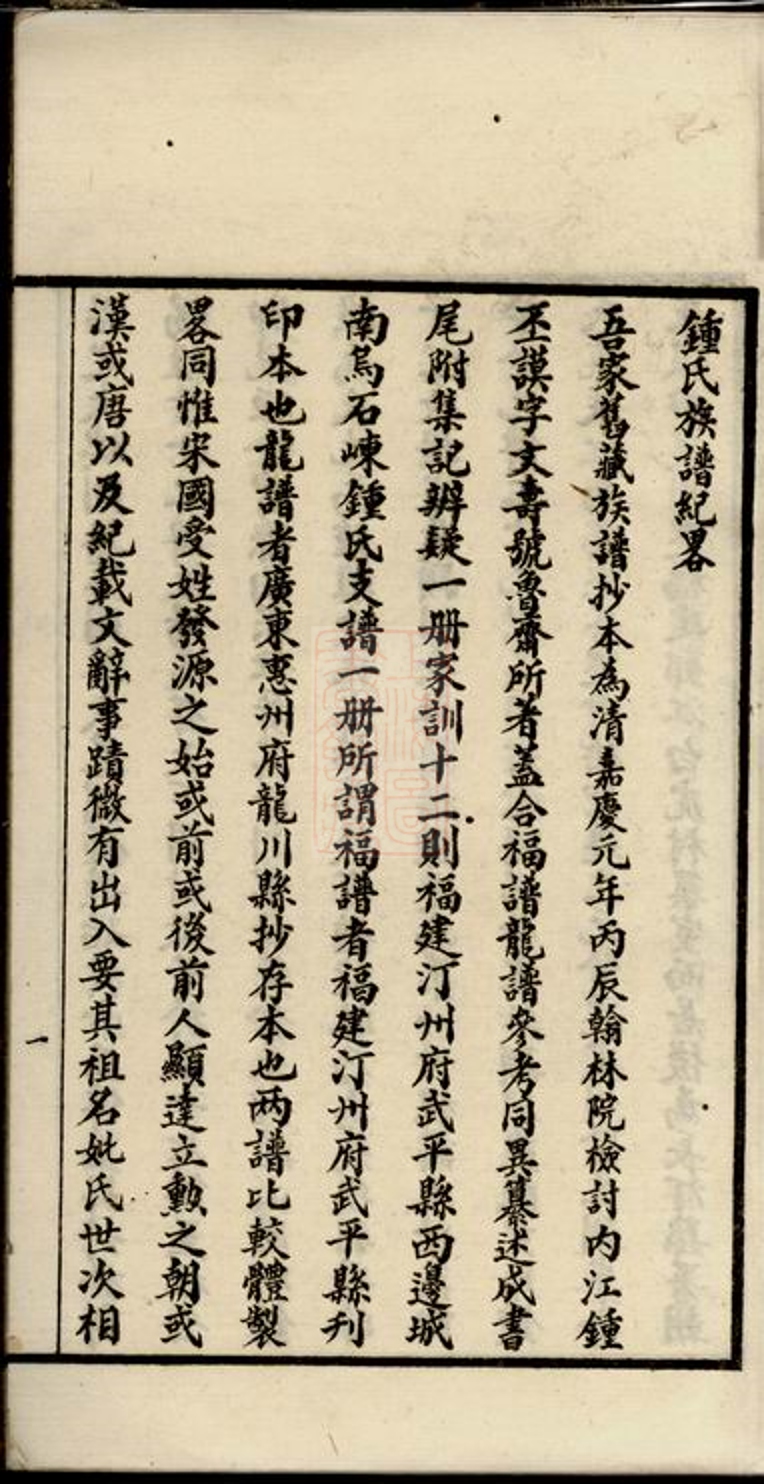 鍾氏族譜紀畧
吾家舊藏族譜抄本為清嘉慶元年丙辰翰林院檢討內江鍾
丕謨字文壽號魯齋所著蓋合福譜龍譜參考同異纂述成書
尾附集記辨疑一册家訓十二則福建汀州府武平縣西邊城
南烏石崠鍾氏支譜一册所謂福譜者福建汀州府武平縣刋
印本也龍譜者廣東惠州府龍川縣抄存本也两譜比較體製
畧同惟宋國受姓發源之始或前或後前人顯達立勲之朝或
漢或唐以及紀載文辭事蹟微有出入要其祖名妣氏世次相
一